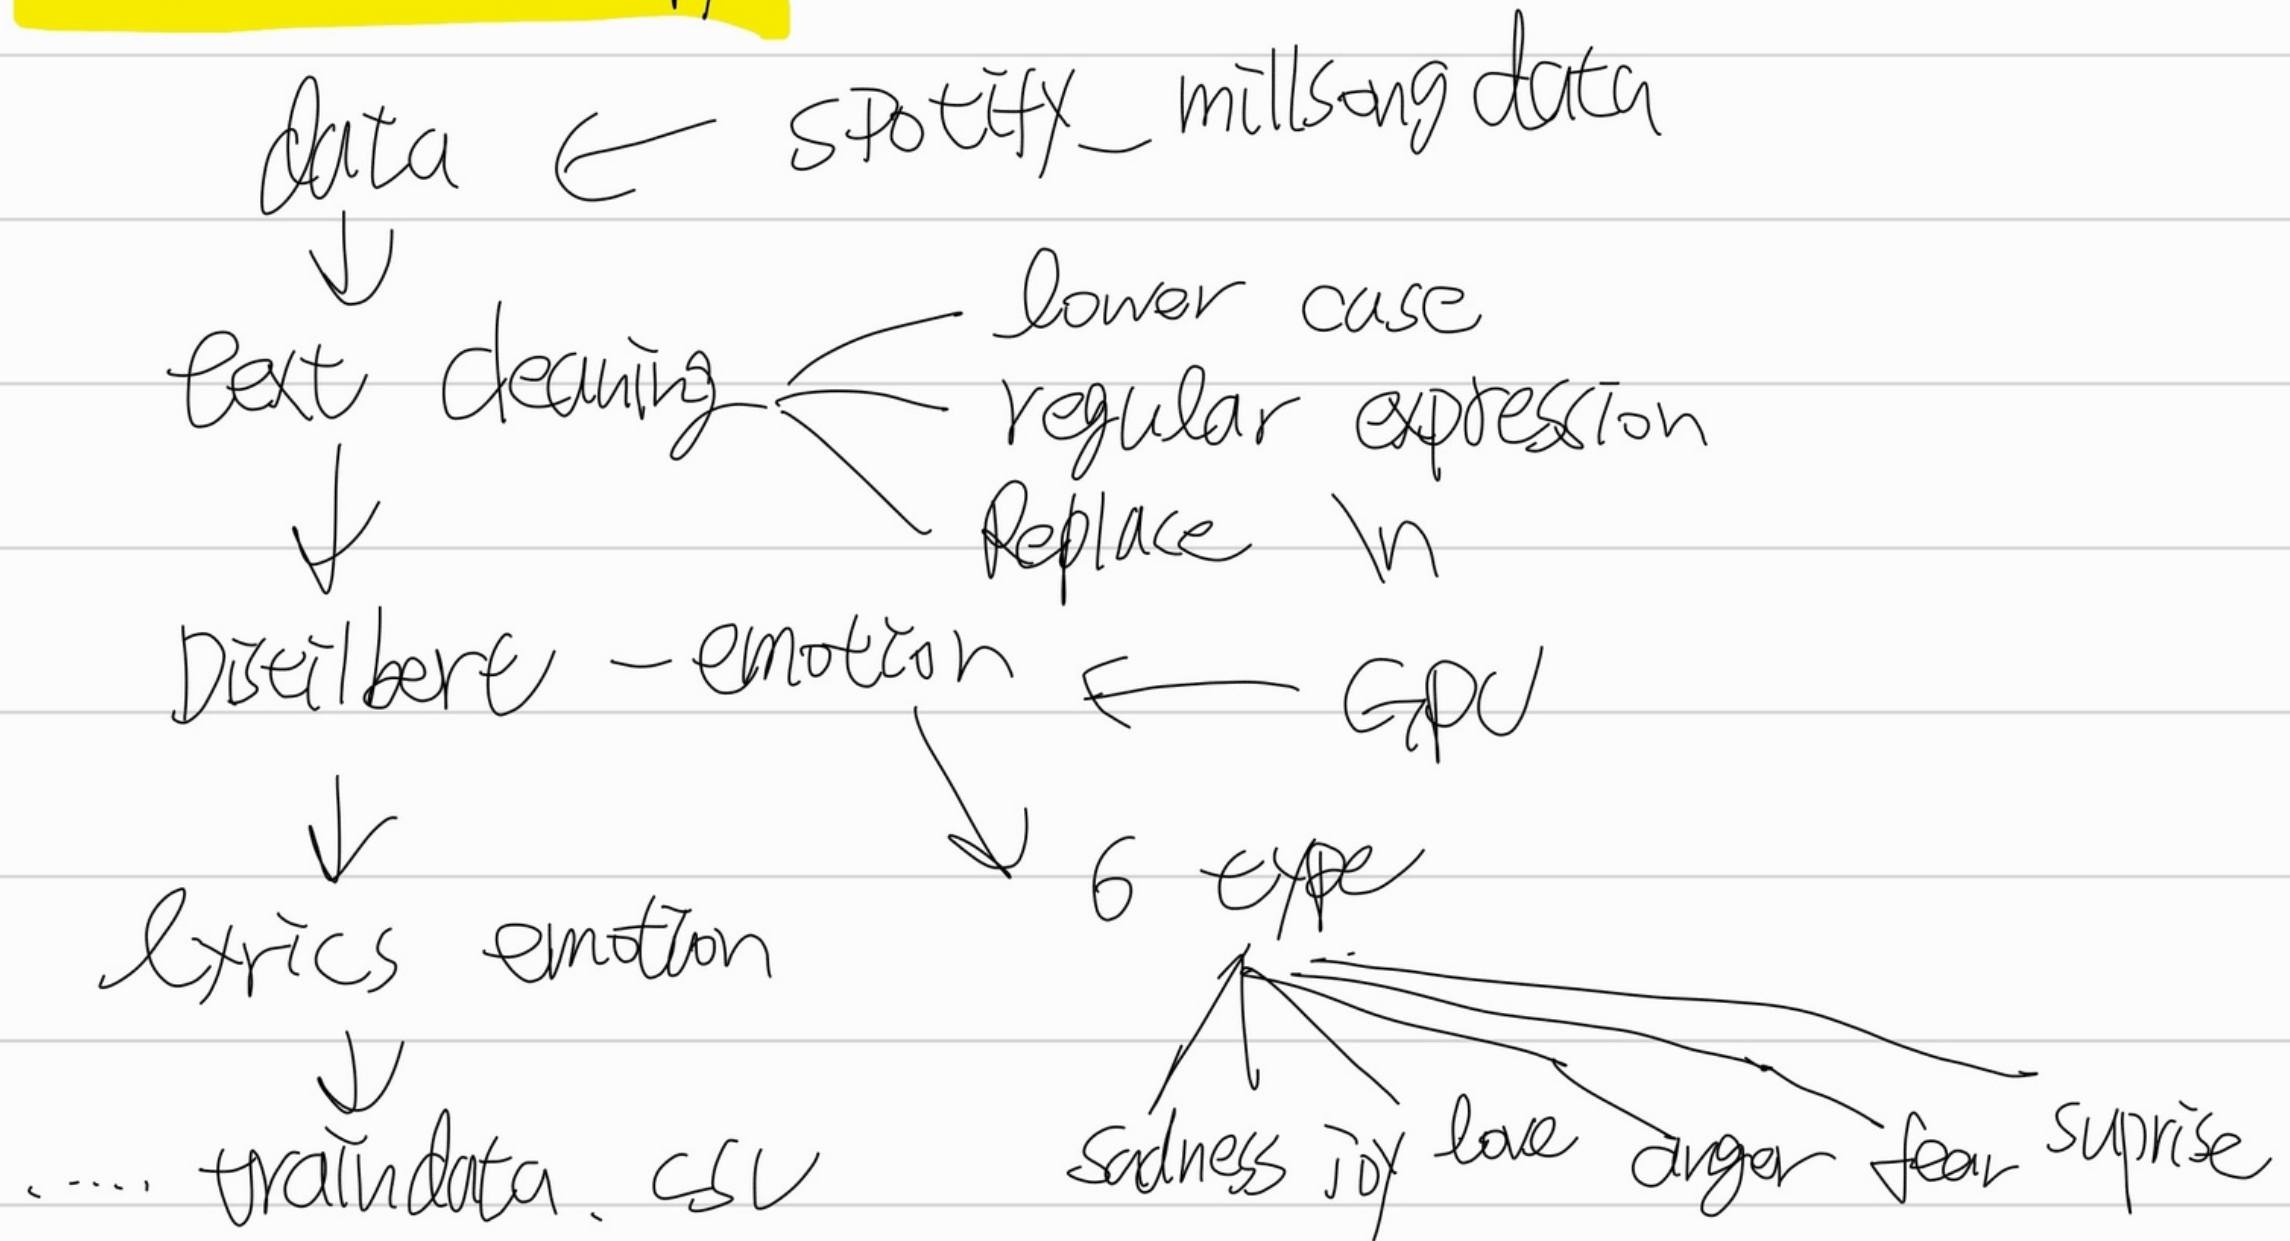 data ← spotify_millsongdata
↓
text cleaning
lower case
regular expression
Replace \n
↓
Distilbert - emotion ← GPU
↓
6 type
lyrics emotion
↓
sadness joy love anger fear suprise
..... traindata.csv